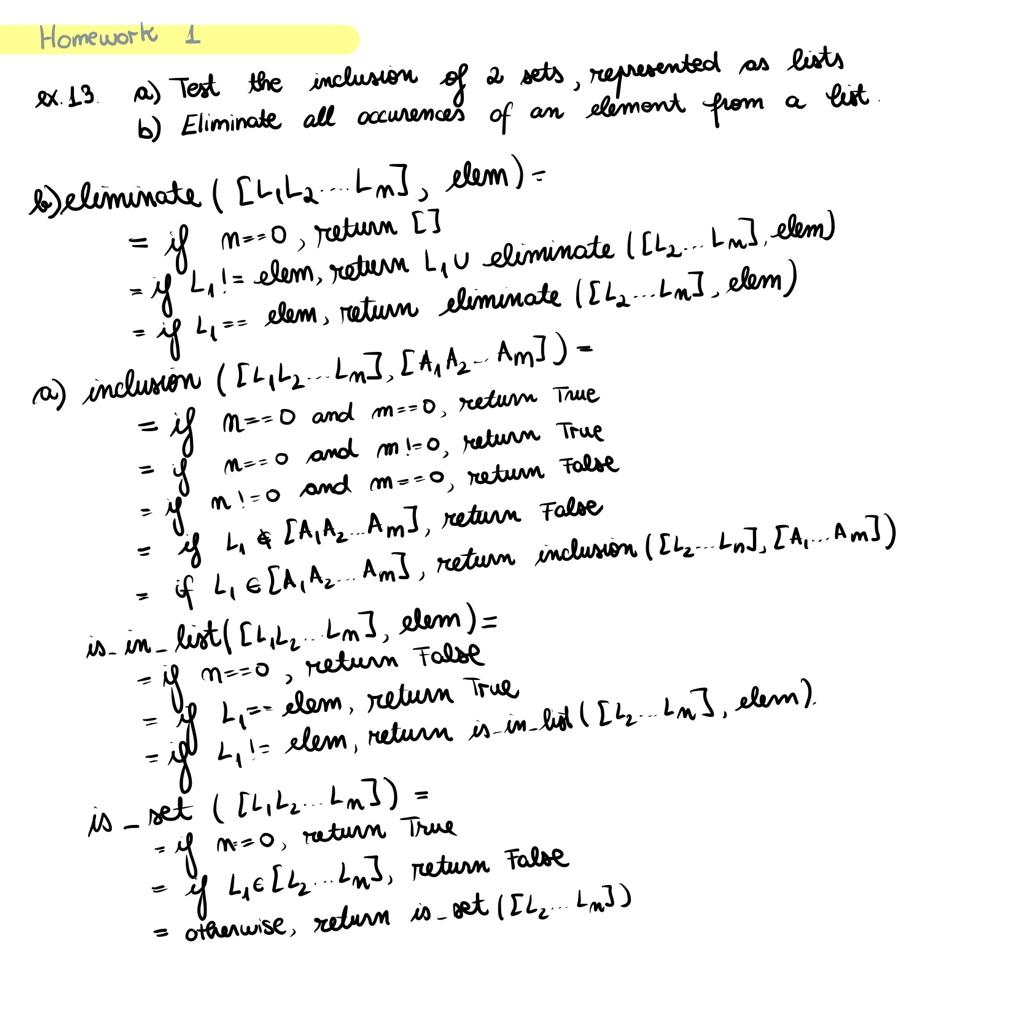 Homework 1
ex. 13. a) Test the inclusion of 2 sets, represented as lists
b) Eliminate all occurences of an element from a list.
b) eliminate ( [L₁L₂...Ln], elem) =
= if n==0, return []
= if L₁ != elem, return L₁ ∪ eliminate ([L₂...Ln], elem)
= if L₁ == elem, return eliminate ([L₂...Ln], elem)
a) inclusion ( [L₁L₂...Ln], [A₁A₂...Am] ) =
= if n==0 and m==0, return True
= if n==0 and m!=0, return True
= if n!=0 and m==0, return False
= if L₁ ∉ [A₁A₂...Am], return False
= if L₁ ∈ [A₁A₂...Am], return inclusion ([L₂...Ln], [A₁...Am])
is_in_list( [L₁L₂...Ln], elem) =
= if n==0, return False
= if L₁ == elem, return True
= if L₁ != elem, return is_in_list ( [L₂...Ln], elem).
is_set ( [L₁L₂...Ln]) =
= if n==0, return True
= if L₁ ∈ [L₂...Ln], return False
= otherwise, return is_set ([L₂...Ln])